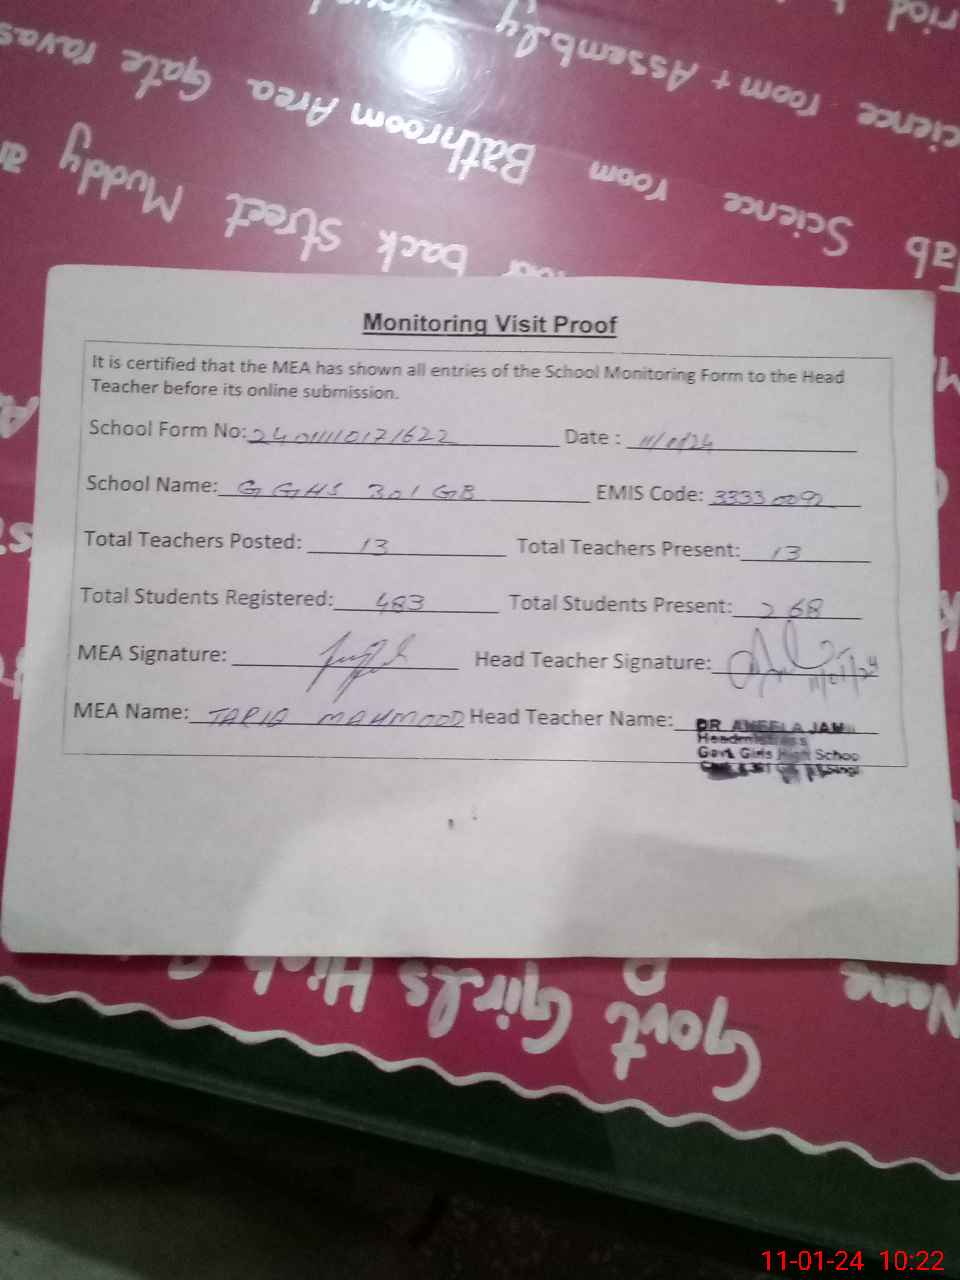 riod
cience room + Assembly
Science room Bathroom Area Gate ravas
Tab
back street Muddy
Monitoring Visit Proof
It is certified that the MEA has shown all entries of the School Monitoring Form to the Head
Teacher before its online submission.
School Form No: Date :
School Name: GGHS 301 GB EMIS Code: 33330092
Total Teachers Posted: 13 Total Teachers Present: 13
Total Students Registered: 483 Total Students Present: 268
MEA Signature: Head Teacher Signature: 11/01/24
MEA Name: TARIQ MAHMOOD Head Teacher Name: DR
Govt Girls High Schoo
Name
Govt Girls High
11-01-24 10:22